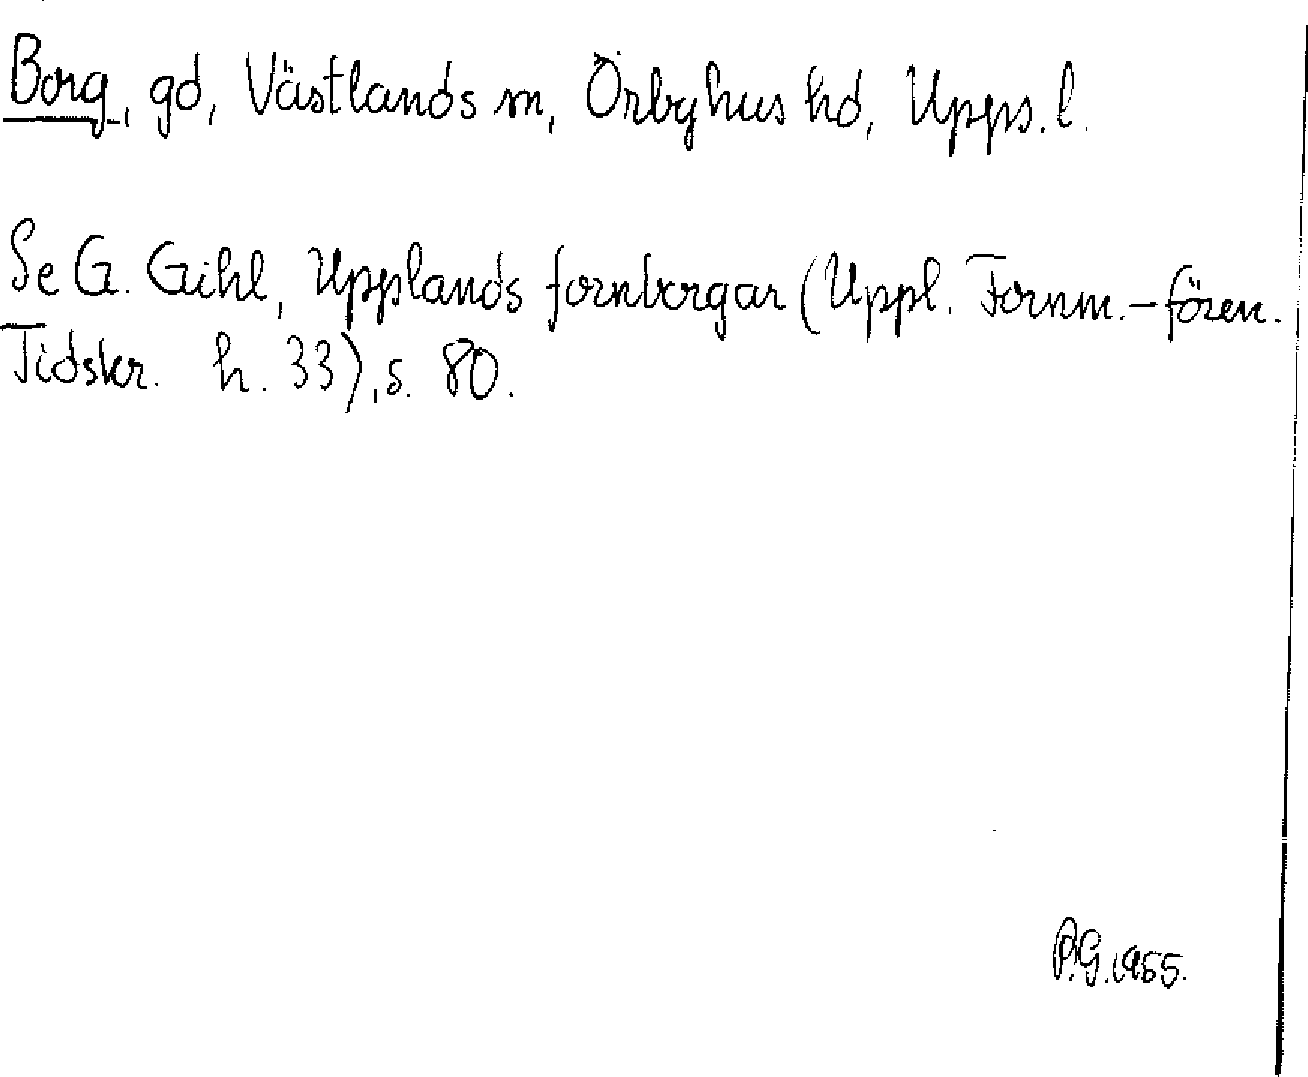 Borg, gd, Västlands sn, Örbyhus hd, Upps. l.
Se G. Gihl, Upplands fornborgar (Uppl. Fornm.-fören.
Tidskr. h. 33), s. 80.
P.G. 1955.